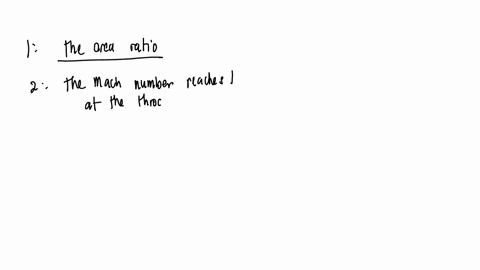 1: the area ratio
2: the Mach number reaches 1
at the throc